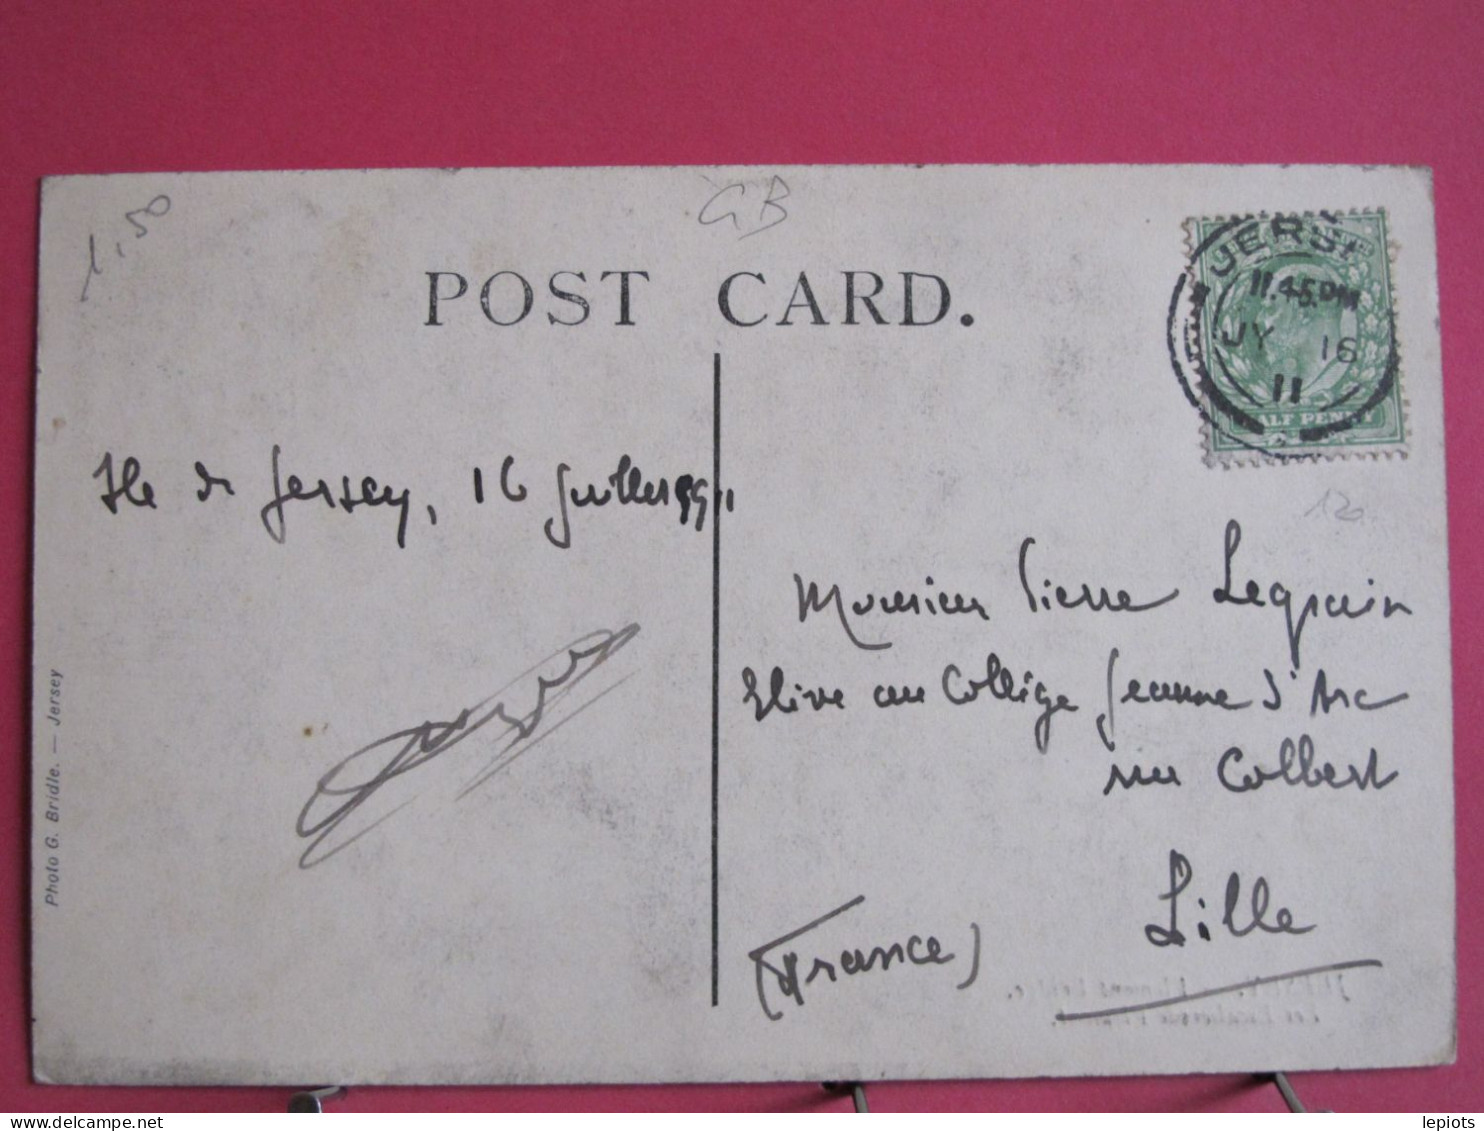 1,50
GB
POST CARD.
JERSEY
11.45 PM
JY 16
11
HALF PENNY
Ile de Jersey, 16 Juillet 1911
120
Monsieur Pierre Legrain
Elève au Collège Jeanne d'Arc
rue Colbert
Lille
(France)
Photo G. Bridle. — Jersey
lepiots
delcampe.net